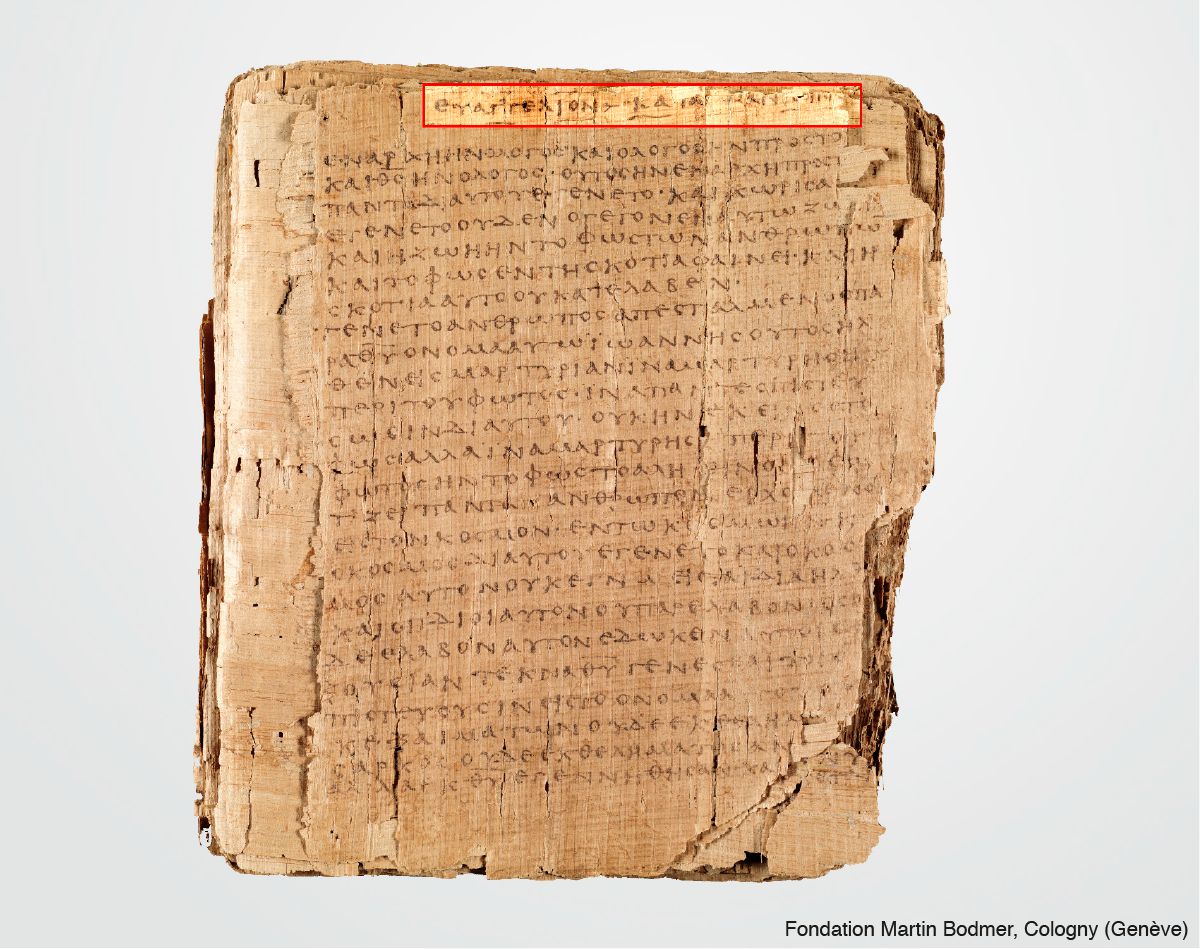 ΕΥΑΓΓΕΛΙΟΝ ΚΑΤΑ
ΕΝΑΡΧΗΗΝΟΛΟΓΟϹΚΑΙΟΛΟΓΟϹΗΝΠΡΟϹΤΟ
ΚΑΙΘϹΗΝΟΛΟΓΟϹ·ΟΥΤΟϹΗΝΕΝΑΡΧΗΠΡΟϹΤ
ΠΑΝΤΑΔΙΑΥΤΟΥΕΓΕΝΕΤΟ·ΚΑΙΧΩΡΙϹΑ
ΕΓΕΝΕΤΟΟΥΔΕΝΟΓΕΓΟΝΕΝΕΝΑΥΤΩΖΩ
ΚΑΙΗΖΩΗΗΝΤΟΦΩϹΤΩΝΑΝΘΡΩΠΩ
ΚΑΙΤΟΦΩϹΕΝΤΗϹΚΟΤΙΑΦΑΙΝΕΙ·ΚΑΙΗ
ϹΚΟΤΙΑΑΥΤΟΟΥΚΑΤΕΛΑΒΕΝ·
ΓΕΝΕΤΟΑΝΘΡΩΠΟϹΑΠΕϹΤΑΛΜΕΝΟϹΠΑ
ΡΑΘΥΟΝΟΜΑΑΥΤΩΙΩΑΝΝΗϹΟΥΤΟϹΗΛ
ΘΕΝΕΙϹΜΑΡΤΥΡΙΑΝΙΝΑΜΑΡΤΥΡΗϹΗ
ΠΕΡΙΤΟΥΦΩΤΟϹ·ΙΝΑΠΑΝΤΕϹΠΙϹΤΕΥ
ϹΩϹΙΝΔΙΑΥΤΟΥ ΟΥΚΗΝΕΚΕΙΝΟϹΤΟ
ΦΩϹΑΛΛΑΙΝΑΜΑΡΤΥΡΗϹΗΠΕΡΙΤΟΥ
ΦΩΤΟϹΗΝΤΟΦΩϹΤΟΑΛΗΘΙΝΟΝ
ΤΙΖΕΙΠΑΝΤΑΑΝΘΡΩΠΟΝΕΡΧΟΜΕΝΟ
ΕΙϹΤΟΝΚΟϹΜΟΝ·ΕΝΤΩΚΟϹΜΩΗΝ
ΟΚΟϹΜΟϹΔΙΑΥΤΟΥΕΓΕΝΕΤΟΚΑΙΟΚΟϹ
ΜΟϹΑΥΤΟΝΟΥΚΕΓΝΩΕΙϹΤΑΙΔΙΑΗΛ
ΚΑΙΟΙΙΔΙΟΙΑΥΤΟΝΟΥΠΑΡΕΛΑΒΟΝ·ΟϹΟΙ
ΔΕΕΛΑΒΟΝΑΥΤΟΝΕΔΩΚΕΝΑΥΤΟΙϹ
ΞΟΥϹΙΑΝΤΕΚΝΑΘΥΓΕΝΕϹΘΑΙΤΟΙϹ
ΠΙϹΤΕΥΟΥϹΙΝΕΙϹΤΟΟΝΟΜΑ
ΟΥΚΕΞΑΙΜΑΤΩΝΟΥΔΕΕΚΘΕΛΗΜΑ
ϹΑΡΚΟϹΟΥΔΕΕΚΘΕΛΗΜΑΤΟϹΑΝ
ΑΛΛΕΚΘΥΕΓΕΝΝΗΘΗϹΑΝΚΑΙ
Fondation Martin Bodmer, Cologny (Genève)